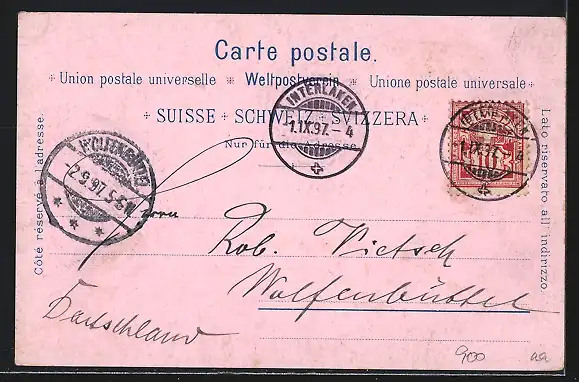 Carte postale.
* Union postale universelle * Weltpostverein * Unione postale universale *
* SUISSE * SCHWEIZ * SVIZZERA *
Nur für die Adresse
Côté réservé à l'adresse.
Lato riservato all' indirizzo.
INTERLAKEN
1.IX.97.-4
INTERLAKEN
1.IX.97.-4
WOLFENBÜTTEL
2.9.97.5-6N
Herrn
Rob. Vietsch
Wolfenbüttel
Deutschland
900